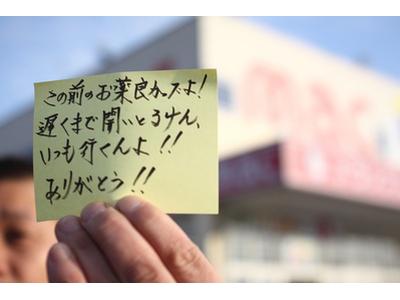 この前のお薬良かったよ！
遅くまで開いとるけん、
いつも行くんよ！！
ありがとう！！